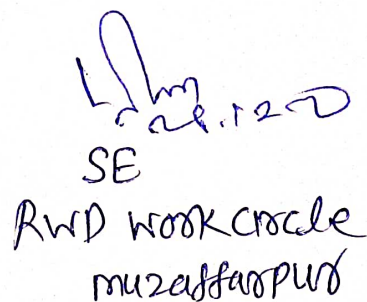 SE
RWD WORK CIRCLE
muzaffarpur